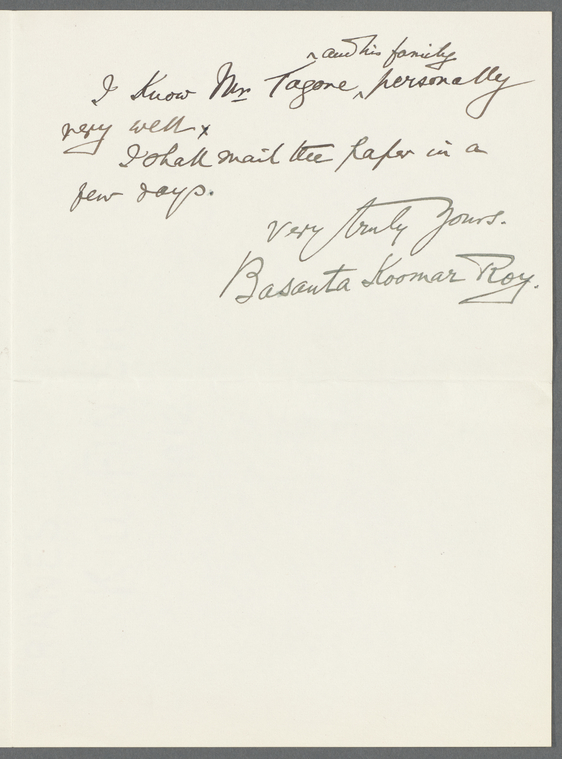 ^ and his family
I know Mr Tagore, ^ personally
very well x
I shall mail the paper in a
few days.
Very truly Yours.
Basanta Koomar Roy.